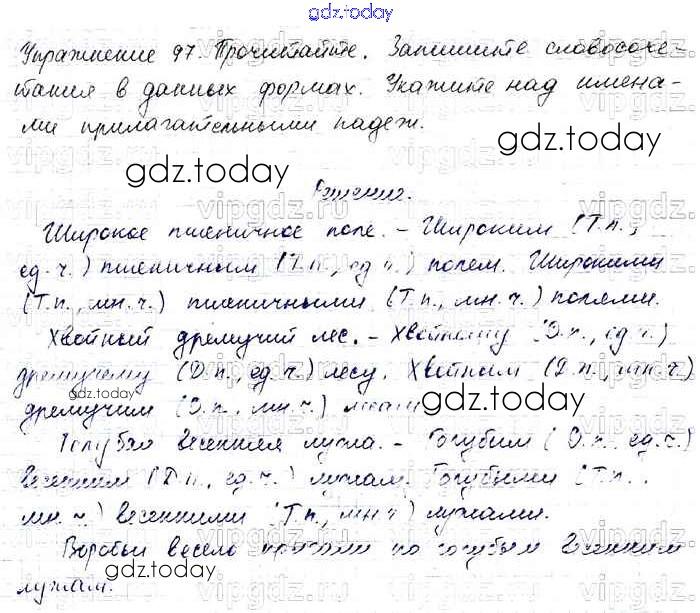 gdz.today
Упражнение 97. Прочитайте. Запишите словосоче-
тания в данных формах. Укажите над имена-
ми прилагательными падеж.
gdz.today
gdz.today
Решение.
Широкое пшеничное поле. – Широким (Т.п.,
ед.ч.) пшеничным (Т.п., ед.ч.) полем. Широкими
(Т.п., мн.ч.) пшеничными (Т.п., мн.ч.) полями.
Хвойный дремучий лес. – Хвойному (Д.п., ед.ч.)
дремучему (Д.п., ед.ч.) лесу. Хвойным (Д.п., мн.ч.)
gdz.today
дремучим (Д.п., мн.ч.) лесам
gdz.today
весенняя лужа. – Голубым (Д.п., ед.ч.)
весенним (Д.п., ед.ч.) лужам. Голубыми (Т.п.,
мн.ч.) весенними (Т.п., мн.ч) лужами.
Воробьи весело прыгали по голубым весенним
gdz.today
лужам.
gdz.today